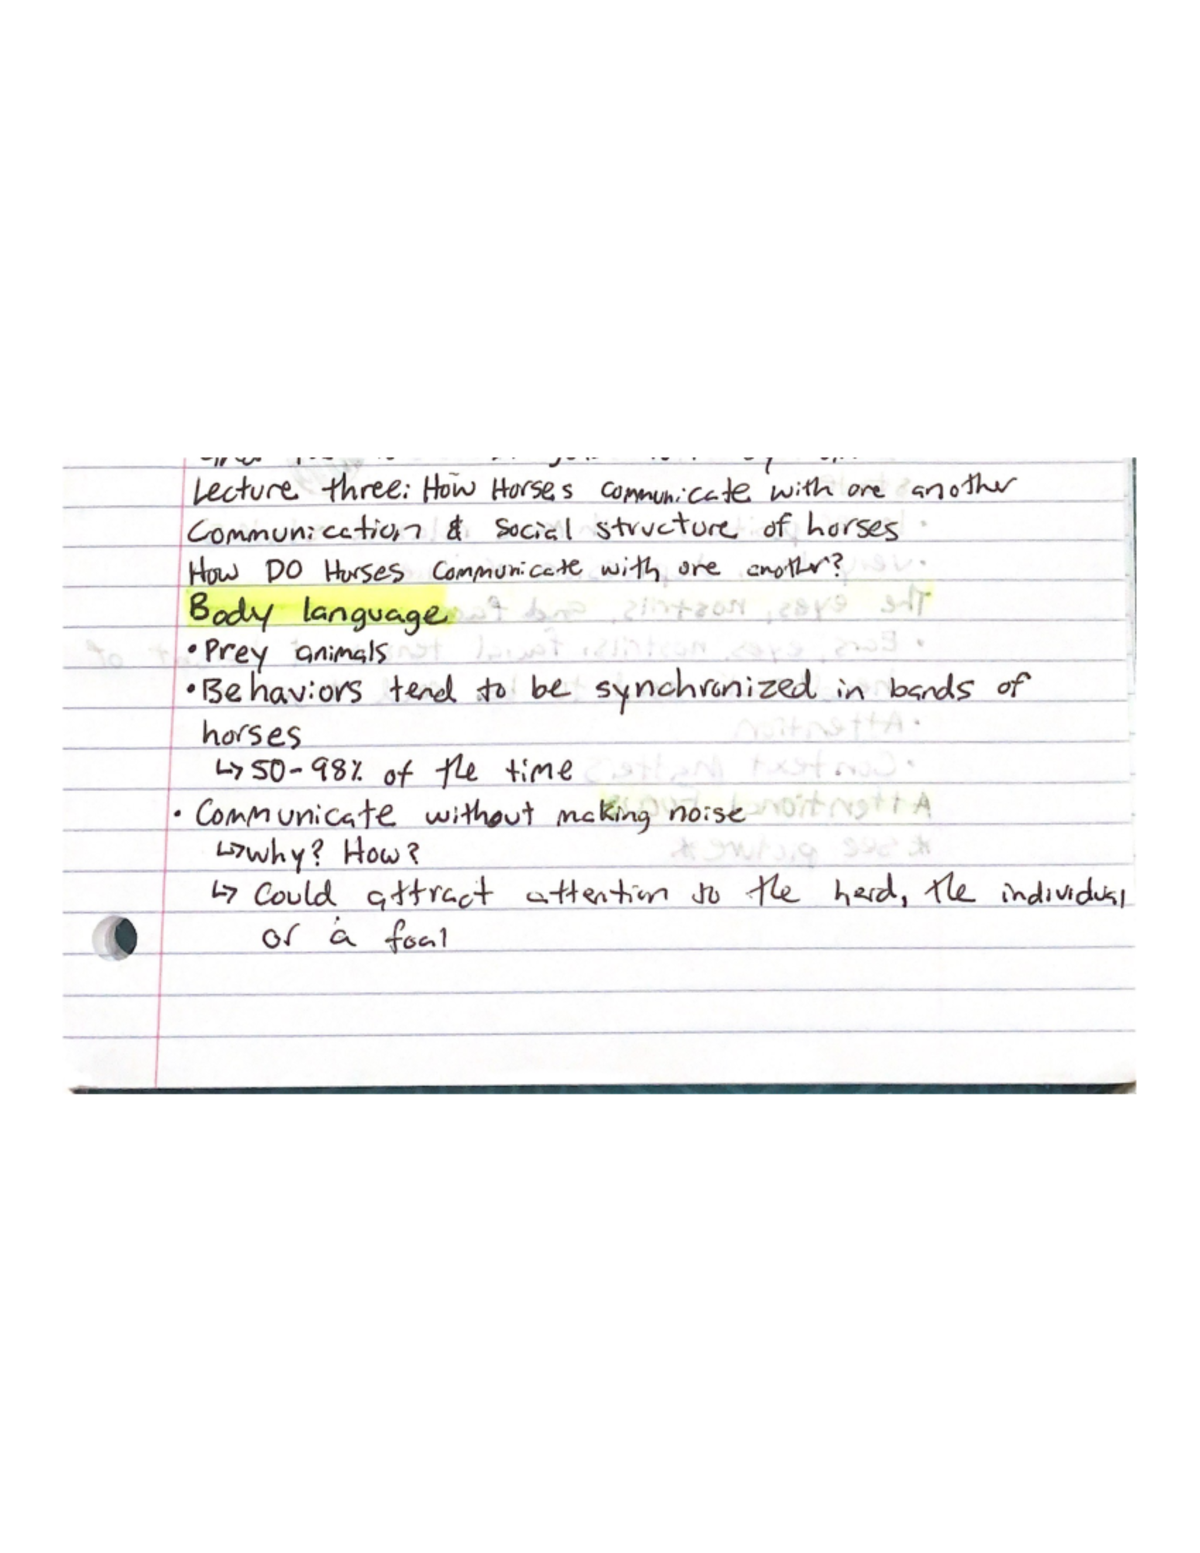 Lecture three: How Horses communicate with one another
Communication & Social structure of horses
How DO Horses Communicate with one another?
Body language
• Prey animals
• Behaviors tend to be synchronized in bands of
horses
↳ 50-98% of the time
• Communicate without making noise
↳ why? How?
↳ Could attract attention to the herd, the individual
or a foal